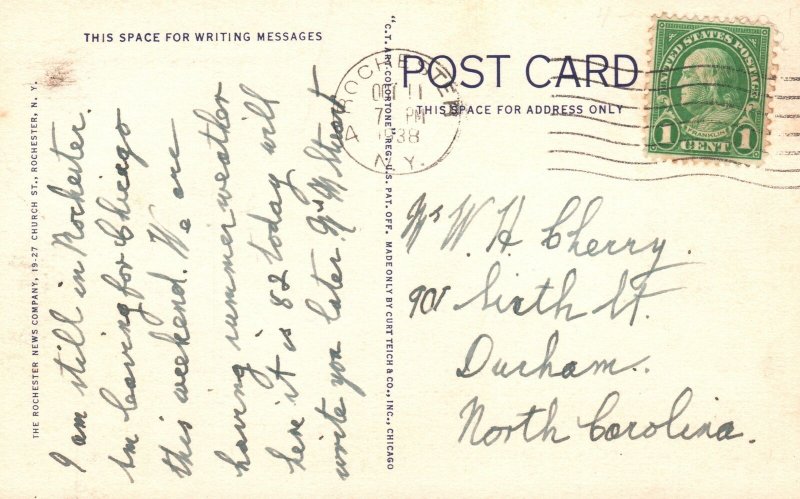 THIS SPACE FOR WRITING MESSAGES
I am still in Rochester.
Im leaving for Chicago
this weekend. We are
having summer weather
here it is 82 today will
write you later. Mrs M Stuart
THE ROCHESTER NEWS COMPANY, 19-27 CHURCH ST., ROCHESTER, N. Y.
"C.T. ART-COLORTONE" REG. U.S. PAT. OFF. MADE ONLY BY CURT TEICH & CO., INC., CHICAGO
ROCHESTER
OCT 11
7 PM
A 1938
N.Y.
POST CARD
THIS SPACE FOR ADDRESS ONLY
UNITED STATES POSTAGE
FRANKLIN
1 CENT 1
Mrs W. H. Cherry.
901 Sixth St.
Durham.
North Carolina.